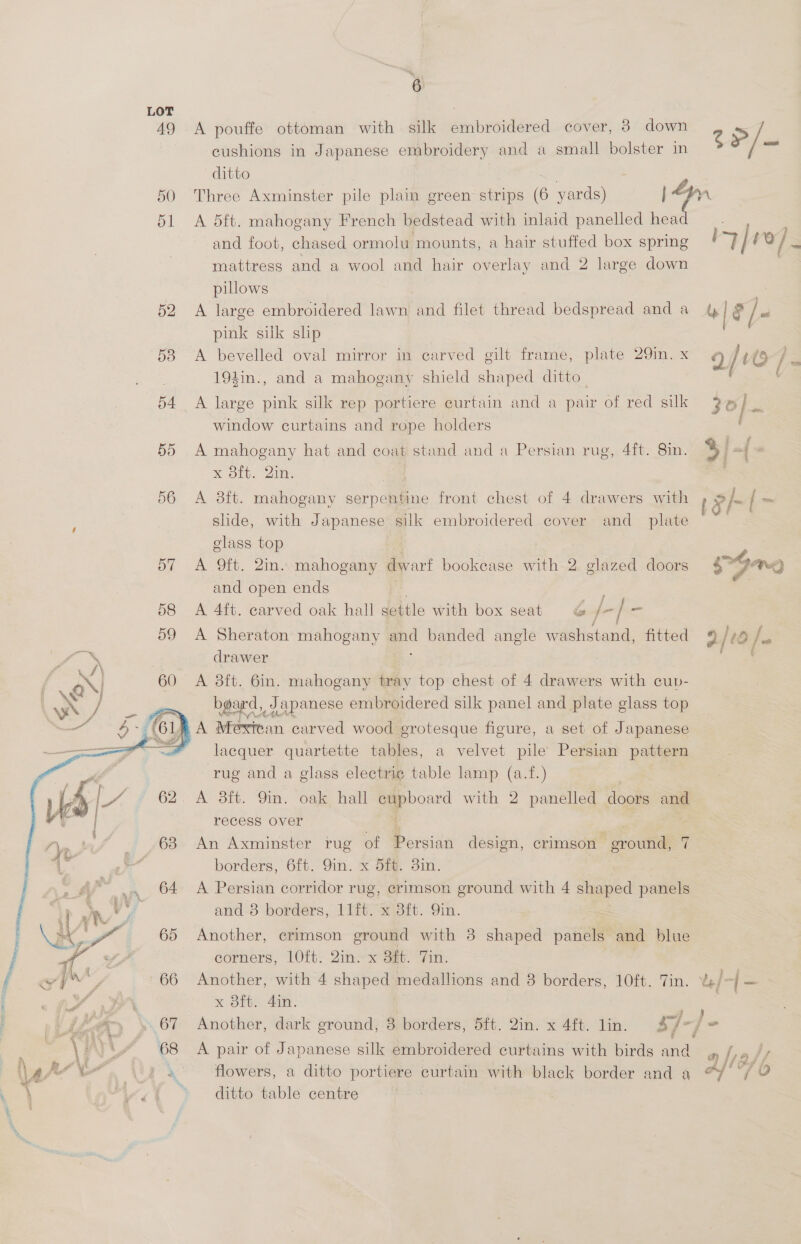 6
LOT
49 A pouffe ottoman with silk embroidered cover, 3 down
cushions in Japanese embroidery and a small bolster in
ditto
50 Three Axminster pile plain green strips (6 yards)
51 A 5ft. mahogany French bedstead with inlaid panelled head
and foot, chased ormolu mounts, a hair stuffed box spring
mattress and a wool and hair overlay and 2 large down
pillows
52 A large embroidered lawn and filet thread bedspread and a
pink silk slip
53 A bevelled oval mirror in carved gilt frame, plate 29in. x
19½in., and a mahogany shield shaped ditto
54 A large pink silk rep portiere curtain and a pair of red silk 30/-
window curtains and rope holders
55 A mahogany hat and coat stand and a Persian rug, 4ft. 8in. 3/-/-
x 3ft. 2in.
56 A 3ft. mahogany serpentine front chest of 4 drawers with
slide, with Japanese silk embroidered cover and plate
glass top
57 A 9ft. 2in. mahogany dwarf bookcase with 2 glazed doors
and open ends
58 A 4ft. carved oak hall settle with box seat 6/-/-
59 A Sheraton mahogany and banded angle washstand, fitted 2/10/-
drawer
60 A 3ft. 6in. mahogany tray top chest of 4 drawers with cup-
board, Japanese embroidered silk panel and plate glass top
61 A Mexican carved wood grotesque figure, a set of Japanese
lacquer quartette tables, a velvet pile Persian pattern
rug and a glass electric table lamp (a.f.)
62 A 3ft. 9in. oak hall cupboard with 2 panelled doors and
recess over
63 An Axminster rug of Persian design, crimson ground, 7
borders, 6ft. 9in. x 5ft. 3in.
64 A Persian corridor rug, crimson ground with 4 shaped panels
and 3 borders, 11ft. x 3ft. 9in.
65 Another, crimson ground with 3 shaped panels and blue
corners, 10ft. 2in. x 3ft. 7in.
66 Another, with 4 shaped medallions and 3 borders, 10ft. 7in. 4/-/-
x 3ft. 4in.
67 Another, dark ground, 3 borders, 5ft. 2in. x 4ft. 1in. 5/-/-
68 A pair of Japanese silk embroidered curtains with birds and
flowers, a ditto portiere curtain with black border and a
ditto table centre